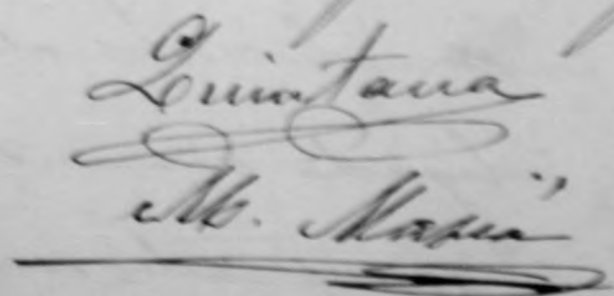 Quintana
M. Mapia